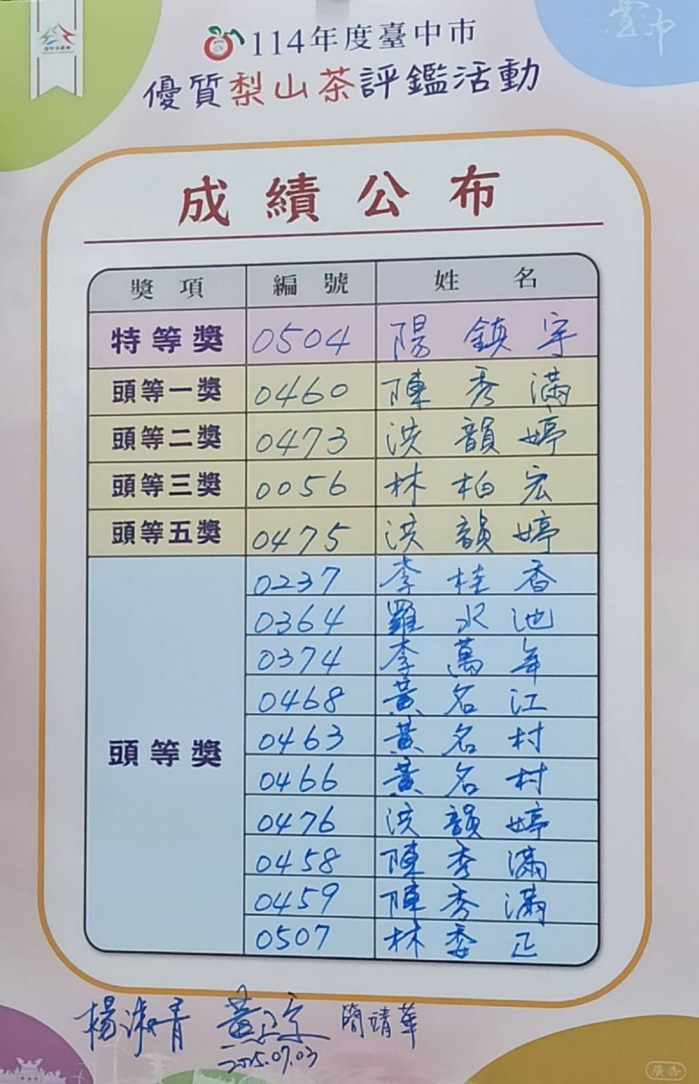 114年度臺中市
優質梨山茶評鑑活動
成績公布
獎項 編號 姓名
特等獎 0504 陽鎮宇
頭等一獎 0460 陳秀滿
頭等二獎 0473 洪韻婷
頭等三獎 0056 林柏宏
頭等五獎 0475 洪韻婷
頭等獎
0237 李桂香
0364 羅水池
0374 李萬年
0468 黃名江
0463 黃名村
0466 黃名村
0476 洪韻婷
0458 陳秀滿
0459 陳秀滿
0507 林委正
楊淑青 簡靖華
2025.07.03
廣告